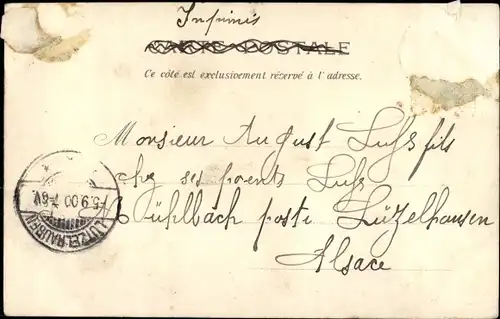 Imprimés
CARTE POSTALE
Ce côté est exclusivement réservé à l'adresse.
Monsieur August Luhs fils
chez ses parents Luhs
à Mühlbach poste Lützelhausen
Alsace
LÜTZELHAUSEN
5.9.00